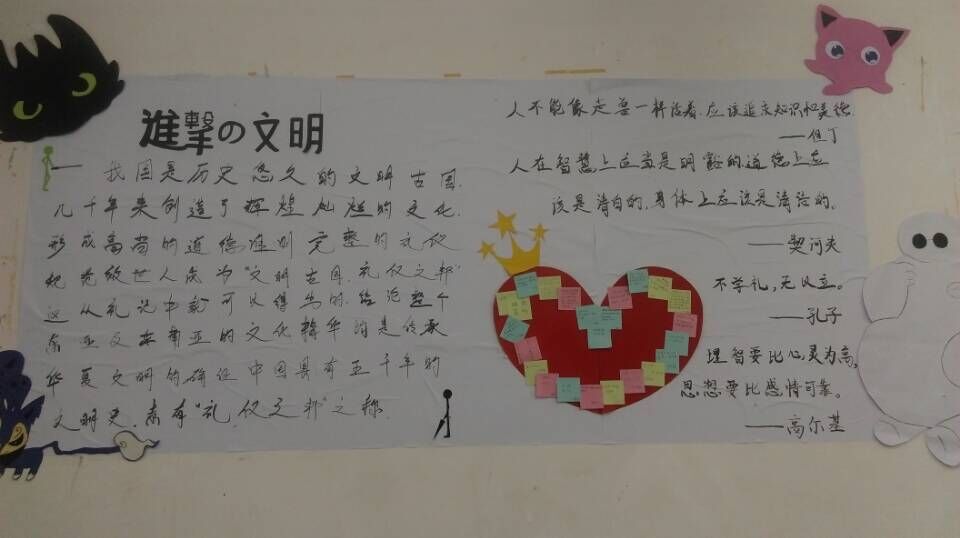 進撃の文明
我国是历史悠久的文明古国.
几千年来创造了辉煌灿烂的文化.
形成高尚的道德准则 完整的礼仪
规范被世人众为"文明古国.礼仪之邦"
这从礼记中就可以得出的.结论整个
东亚及东南亚的文化精华均是传承
华夏文明的确任中国具有五千年的
文明史.素有"礼.仪之邦"之称.
人不能像走兽一样活着.应该追求知识和美德.
——但丁
人在智慧上应当是明豁的道德上应
该是清白的.身体上应该是清洁的.
——契诃夫
不学礼,无以立。
——孔子
理智要比心灵为高,
思想要比感情可靠。
——高尔基